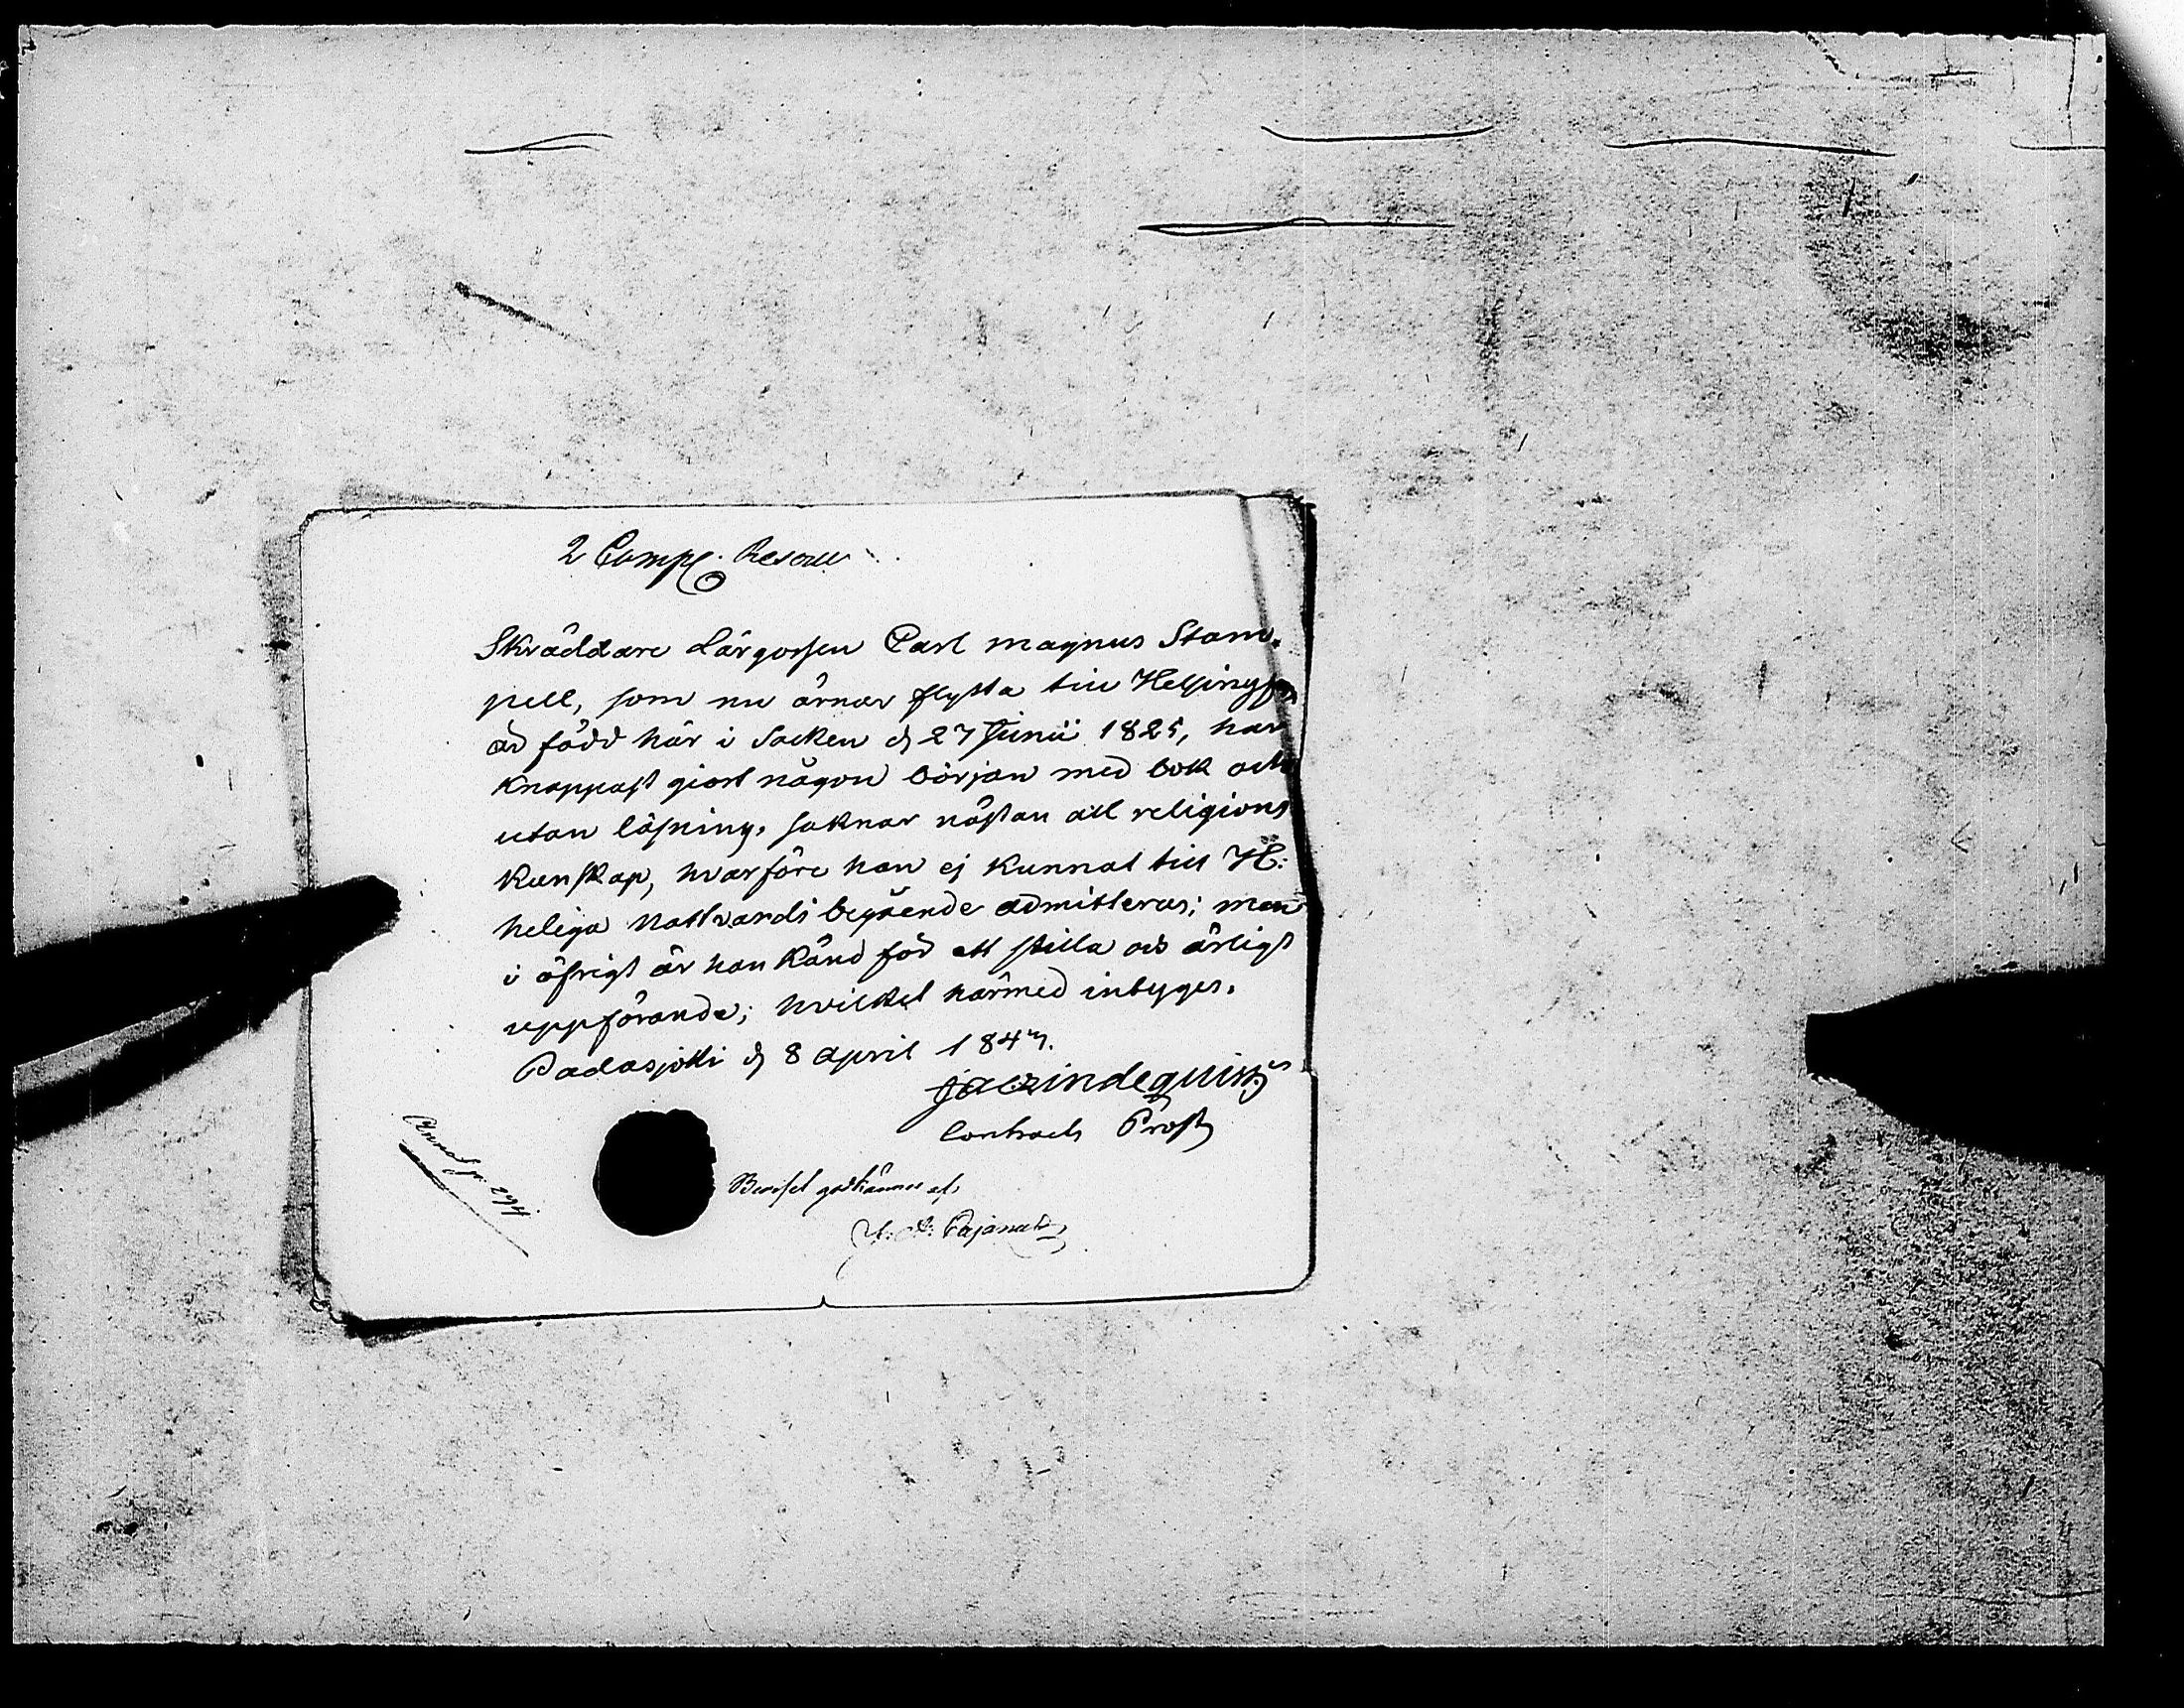 2 Comp.
Skräddare Lärgossen Carl Magnus Stam-
pell, som nu ärnar flytta till Helsingfo
är född här i Socken d 27 Junii 1825, har
knappast giort någon början med bok och
utan läsning, saknar nästan all religions
kunskap, hvarföre han ej kunnat till H:
heliga nattvards begående admitteras; men
i öfrigt är han känd för ett stilla och ärligt
uppförande; hvilket härmed intygas.
Padasjoki d 8 April 1847.
Lindequist
Contracts Prost
Beviset godkännes af
Annot p. 294